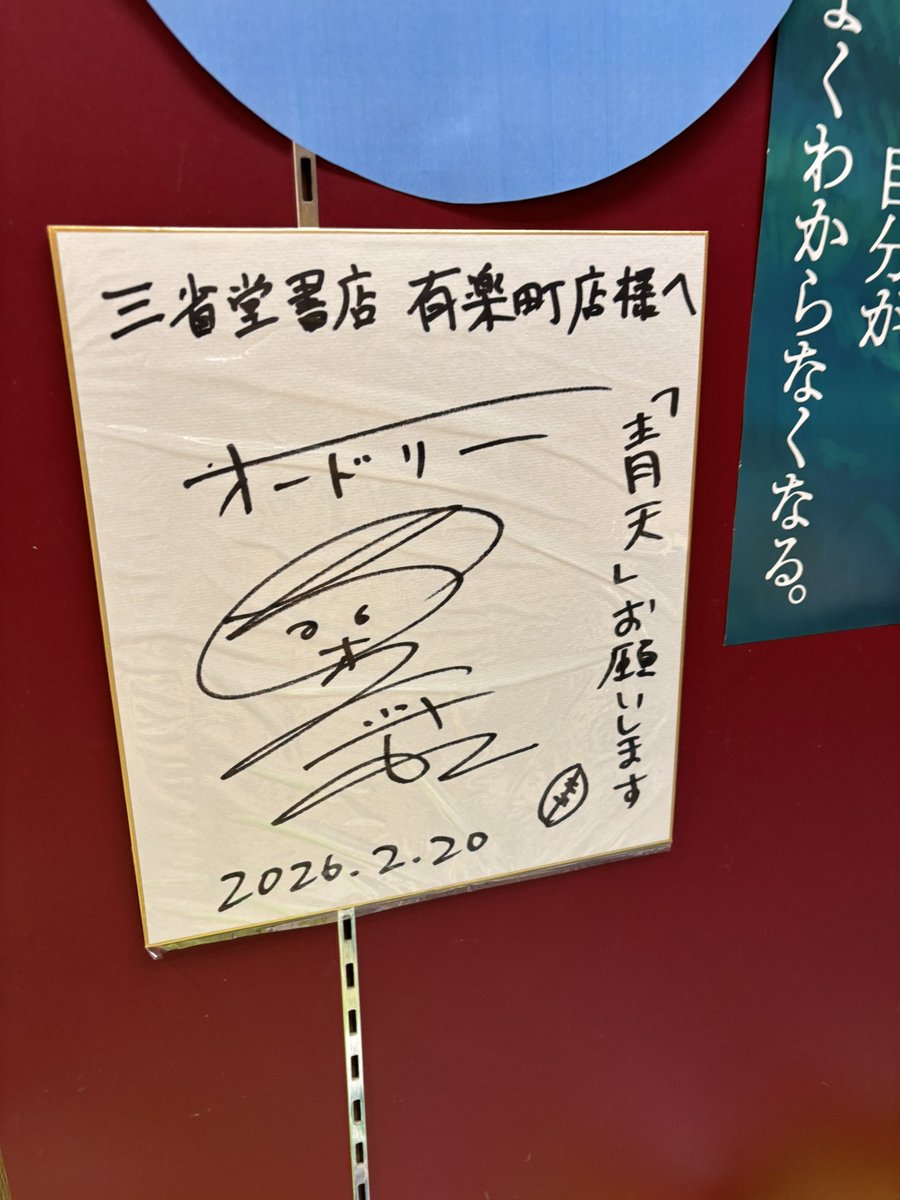 三省堂書店 有楽町店様へ
オードリー
「青天」お願いします
2026.2.20
自分が
よくわからなくなる。